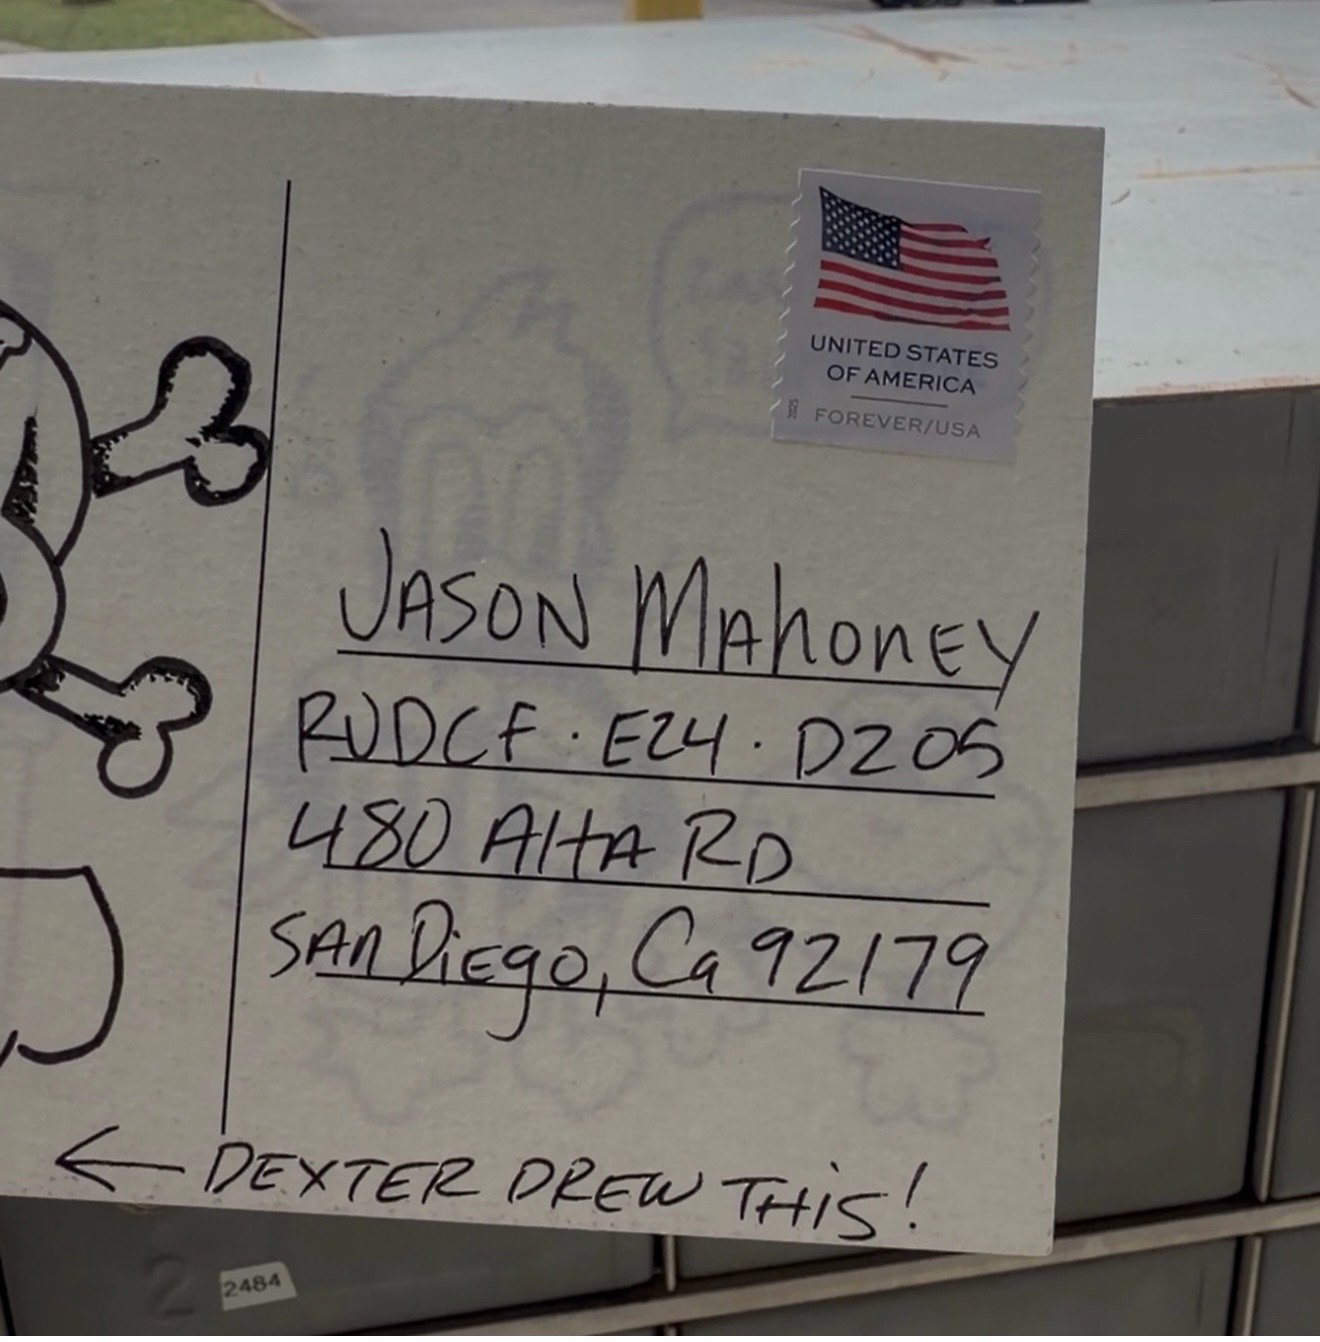 UNITED STATES
OF AMERICA
FOREVER/USA
2025
JASON MAhonEY
RJDCF · E24 · D205
480 AltA RD
SAn DiEgo, Ca 92179
← DEXTER DREW THiS!
2
2484